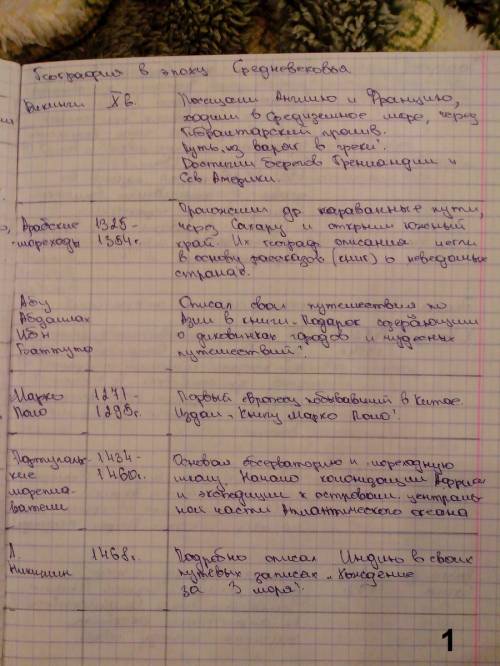 География в эпоху Средневековья
Викинги Xв. Посещали Англию и Францию,
ходили в Средиземное море, через
Гибралтарский пролив.
Путь „из варяг в греки".
Достигли берегов Гренландии и
Сев. Америки.
Арабские 1325- Проложили др. караванные пути,
мореходы 1354г. через Сахару и открыли южный
край. Их географ описания легли
в основу рассказов (книг) о неведомых
странах.
Абу Описал свои путешествия по
Абдаллах Азии в книги „Подарок
Ибн о диковинках городов и чудесных
Баттута путешествий".
Марко 1271- Первый европеец побывавший в Китае.
Поло 1295г. Издал „Книгу Марко Поло".
Португаль- 1434- Основал обсерваторию и мореходную
ские 1460г. школу. Начало колонизации Африки
морепла- и экспедиции к островам централь-
ватели ной части Атлантического океана
А. 1468г. Подробно описал Индию в своих
Никитин путевых записах „Хождение
за 3 моря".
1